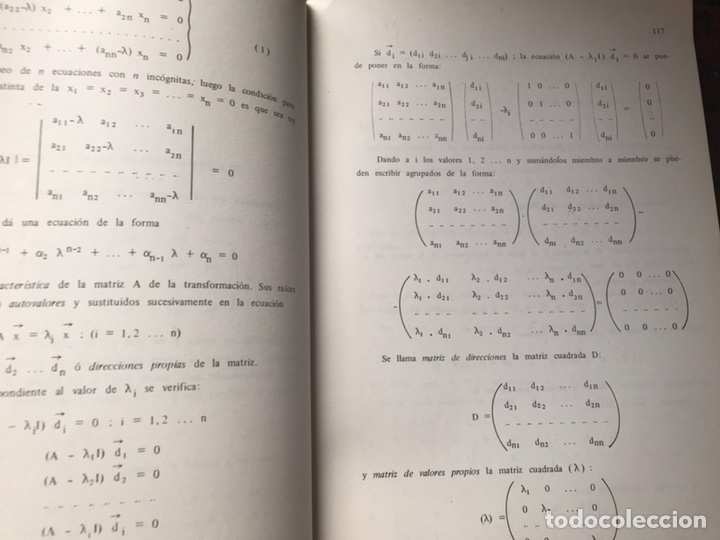 (a22-λ) x2 + ... + a2n xn = 0
an2 x2 + ... + (ann-λ) xn = 0
(1)
eo de n ecuaciones con n incógnitas; luego la condición para
stinta de la x1 = x2 = x3 = ... = xn = 0 es que sea
λI | = | a11-λ a12 ... a1n |
| a21 a22-λ ... a2n |
| - - - - - - - - | = 0
| an1 an2 ... ann-λ |
dá una ecuación de la forma
n-1 + α2 λ n-2 + ... + αn-1 λ + αn = 0
acterística de la matriz A de la transformación. Sus raíces
autovalores y sustituidos sucesivamente en la ecuación
A x = λi x ; (i = 1, 2 ... n)
d2 ... dn ó direcciones propias de la matriz.
pondiente al valor de λi se verifica:
- λiI) di = 0 ; i = 1, 2 ... n
(A - λ1I) d1 = 0
(A - λ2I) d2 = 0
- - - - - - - -
(A - λiI) di = 0
117
Si di = (d1i d2i ... dji ... dni) ; la ecuación (A - λiI) di = 0 se pue-
de poner en la forma:
| a11 a12 ... a1n | | d1i | | 1 0 ... 0 | | d1i | | 0 |
| a21 a22 ... a2n | | d2i | -λi | 0 1 ... 0 | | d2i | = | 0 |
| an1 an2 ... ann | | dni | | 0 0 ... 1 | | dni | | 0 |
Dando a i los valores 1, 2 ... n y sumándolos miembro a miembro se pue-
den escribir agrupados de la forma:
( a11 a12 ... a1n ) ( d11 d12 ... d1n )
( a21 a22 ... a2n ) . ( d21 d22 ... d2n ) -
( an1 an2 ... ann ) ( dn1 dn2 ... dnn )
( λ1 . d11 λ2 . d12 ... λn . d1n ) ( 0 0 ... 0 )
- ( λ1 . d21 λ2 . d22 ... λn . d2n ) = ( 0 0 ... 0 )
( λ1 . dn1 λ2 . dn2 ... λn . dnn ) ( 0 0 ... 0 )
Se llama matriz de direcciones la matriz cuadrada D:
( d11 d12 ... d1n )
D = ( d21 d22 ... d2n )
( dn1 dn2 ... dnn )
y matriz de valores propios la matriz cuadrada (λ) :
( λ1 0 ... 0 )
(λ) = ( 0 λ2 ... 0 )
todocoleccion